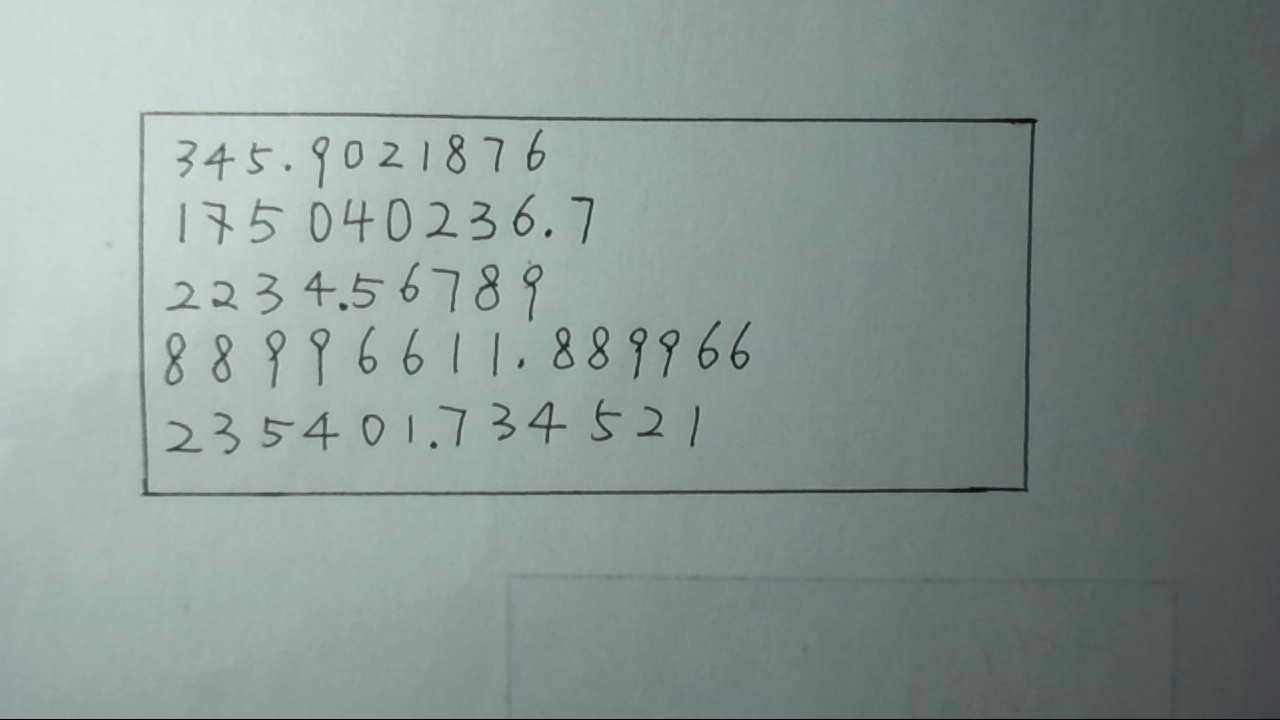 345.9021876
175 040236.7
2234.56789
88996611.889966
235401.734521